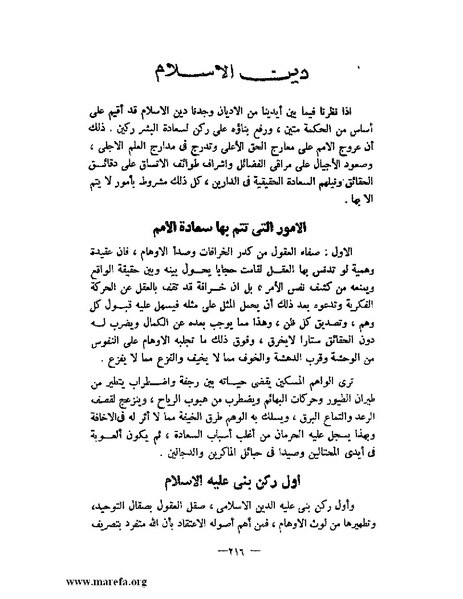 دين الاسلام
اذا نظرنا فيما بين أيدينا من الاديان وجدنا دين الاسلام قد أقيم على
أساس من الحكمة متين ، ورفع بناؤه على ركن لسعادة البشر ركين . ذلك
أن عروج الامم على معارج الحق الأعلى وتدرج فى مدارج العلم الاجلى ،
وصعود الأجيال على مراقى الفضائل واشراف طوائف الانسان على دقائق
الحقائق ونيلهم السعادة الحقيقية فى الدارين ، كل ذلك مشروط بأمور لا يتم
الا بها .
الامور التى تتم بها سعادة الامم
الاول : صفاء العقول من كدر الخرافات وصدأ الاوهام ، فان عقيدة
وهمية لو تدنس بها العقل لقامت حجابا يحول بينه وبين حقيقة الواقع
ويمنعه من كشف نفس الأمر ، بل ان خرافة قد تقف بالعقل عن الحركة
الفكرية وتدعوه بعد ذلك أن يحمل المثل على مثله فيسهل عليه قبول كل
وهم ، وتصديق كل ظن ، وهذا مما يوجب بعده عن الكمال ويضرب له
دون الحقائق ستارا لايخرق ، وفوق ذلك ما تجلبه الاوهام على النفوس
من الوحشة وقرب الدهشة والخوف مما لا يخيف والفزع مما لا يفزع .
ترى الواهم المسكين يقضى حياته بين رجفة واضطراب يتطير من
طيران الطيور وحركات البهائم ويضطرب من هبوب الرياح ، وينزعج لقصف
الرعد والتماع البرق ، ويسلك به الوهم طرق الخيفة مما لا أثر له فى الاخافة
وبهذا يسجل عليه الحرمان من أغلب أسباب السعادة ، ثم يكون ألعوبة
فى أيدى المحتالين وصيدا فى حبائل الماكرين والدجالين .
اول ركن بنى عليه الاسلام
وأول ركن بنى عليه الدين الاسلامى ، صقل العقول بصقال التوحيد،
وتطهيرها من لوث الاوهام ، فمن أهم أصوله الاعتقاد بأن الله متفرد بتصريف
— ٢١٦ —
www.marefa.org